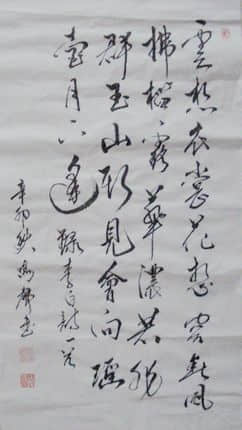 雲想衣裳花想容春風
拂檻露華濃若非
群玉山頭見會向瑤
臺月下逢 錄李白詩一首
辛卯秋